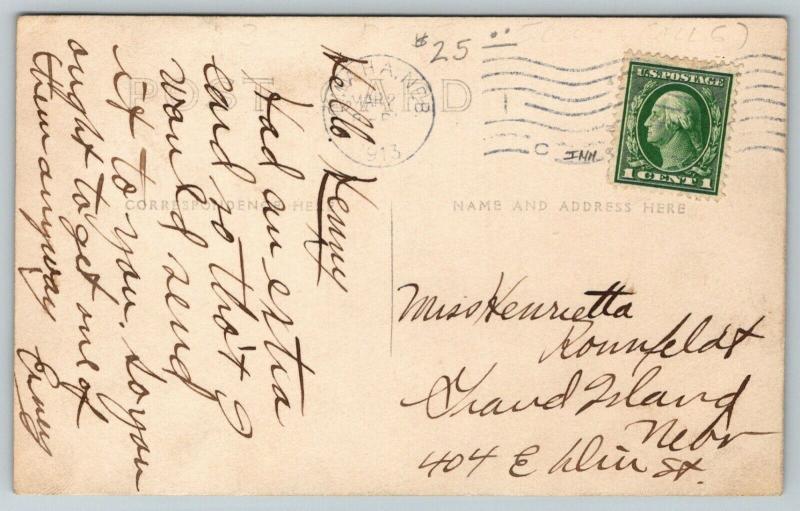 POST CARD
CORRESPONDENCE HERE
NAME AND ADDRESS HERE
$25
MAR
1913
U.S. POSTAGE
1 CENT 1
Hello. Henny
Had an extra
card so tho't I
would send
it to you. So you
ought to get one of
them anyway
Miss Henrietta
Rounfeldt
Grand Island
Nebr
404 E St.